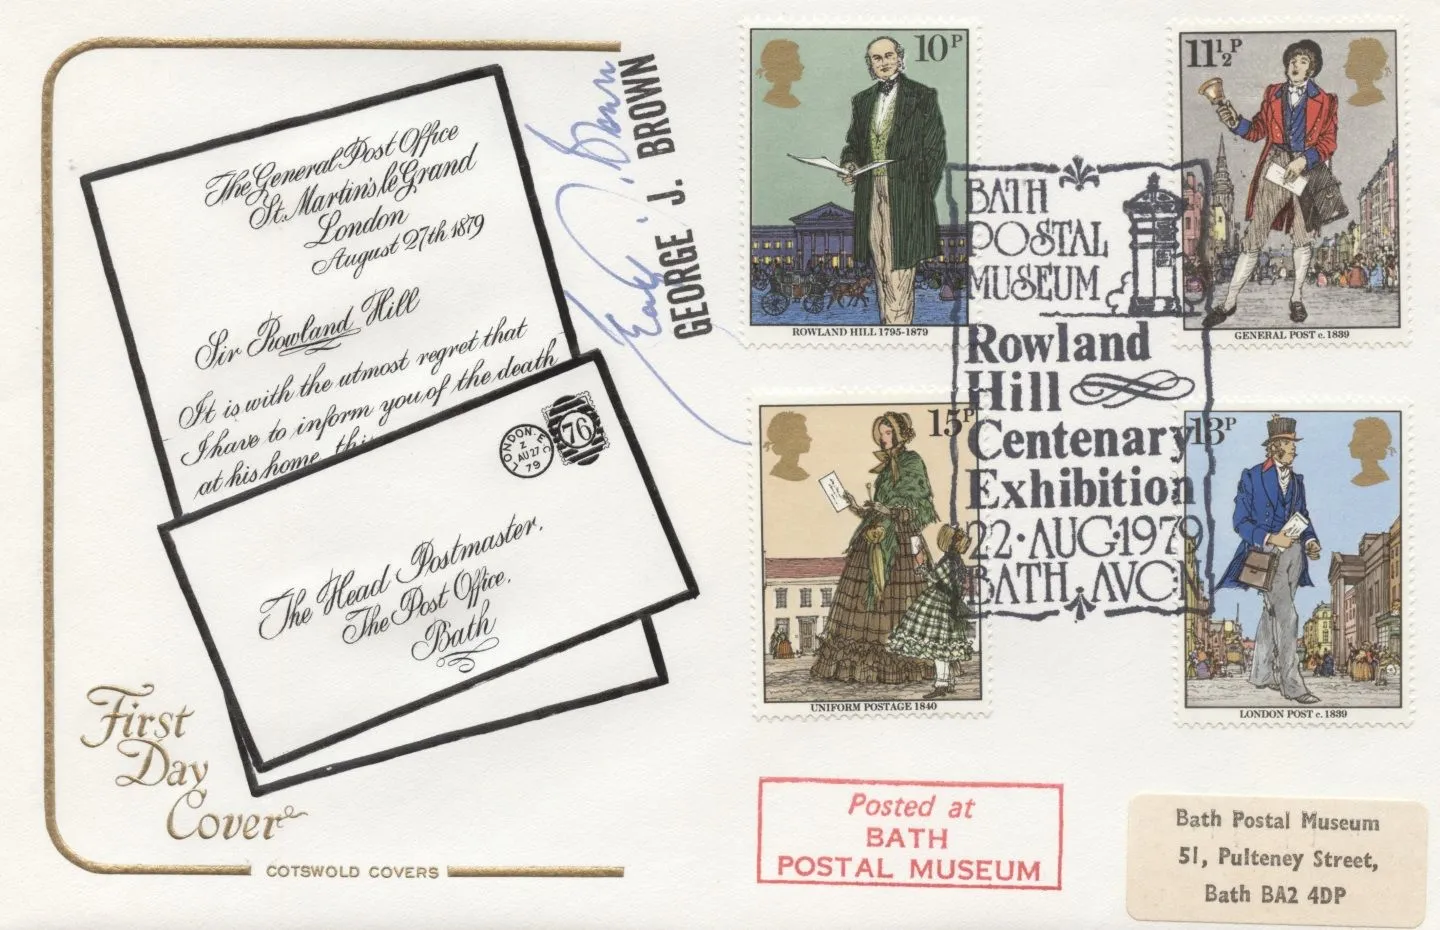 The General Post Office
St. Martin's le Grand
London
August 27th 1879
Sir Rowland Hill
It is with the utmost regret that
I have to inform you of the death
at his home, this
LONDON·E.C
Z
AU 27
79
76
The Head Postmaster,
The Post Office,
Bath
First
Day
Cover
COTSWOLD COVERS
George J. Brown
GEORGE J. BROWN
10P
ROWLAND HILL 1795-1879
11½P
GENERAL POST c. 1839
15P
UNIFORM POSTAGE 1840
13P
LONDON POST c. 1839
BATH
POSTAL
MUSEUM
Rowland
Hill
Centenary
Exhibition
22·AUG·1979
BATH, AVON
Posted at
BATH
POSTAL MUSEUM
Bath Postal Museum
51, Pulteney Street,
Bath BA2 4DP